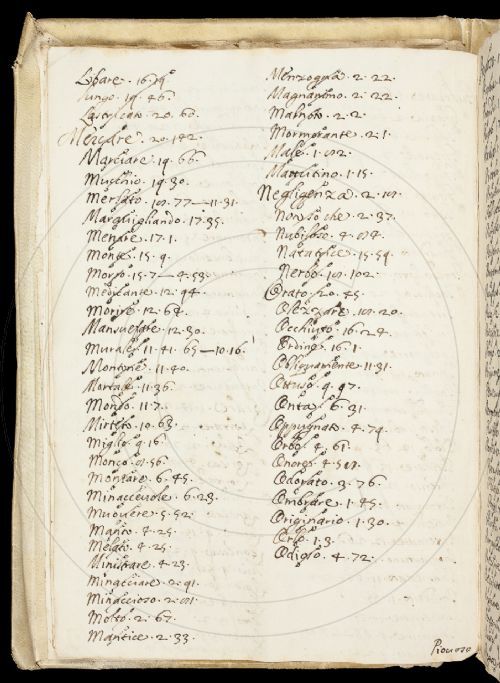 Libare. 16. 19
Lungo. 19. 46.
20. 60.
Mercare. 20. 142.
Marciare. 19. 66.
Muschio. 19. 30.
Mersato. 77—11. 31.
Marauigliando. 17. 35.
Menare. 17. 1.
Monte. 15. 9.
Morso. 15. 7—4. 53.
Medicante. 12. 94.
Morire. 12. 64.
Mansuefare. 12. 30.
Murale. 11. 41. 65—10. 16.
Montone. 11. 40.
Mortale. 11. 36.
Mondo. 11. 7.
Mirteto. 10. 63.
Miglio. 9. 16.
Monco. 56.
Montare. 6. 45.
Minacceuole. 6. 23.
Muouere. 5. 52.
Manto. 4. 25.
Melato. 4. 25.
Ministrare. 4. 23.
Minacciare. 2. 91.
Minaccioso. 2.
Molto. 2. 67.
Mantice. 2. 33.
Menzogna. 2. 22.
Magnanimo. 2. 22.
Malnoto. 2. 2.
Mormorante. 2. 1.
Male. 1.
Mattutino. 1. 15.
Negligenza. 2.
Non so che. 2. 37.
Nubiloso. 4.
Natatrice. 15. 59.
Nerbo. 102.
Orato. 20. 45.
Olezzare. 20.
Occhiuto. 16. 24.
Ordine. 16. 1.
Obliquamente. 11. 31.
Ottuso. 9. 97.
Onta. 6. 31.
Oppugnato. 4. 74.
Orbo. 4. 61.
Onore. 4.
Odorato. 3. 76.
Ombrare. 1. 45.
Originario. 1. 30.
Orlo. 1. 3.
Odioso. 4. 72.